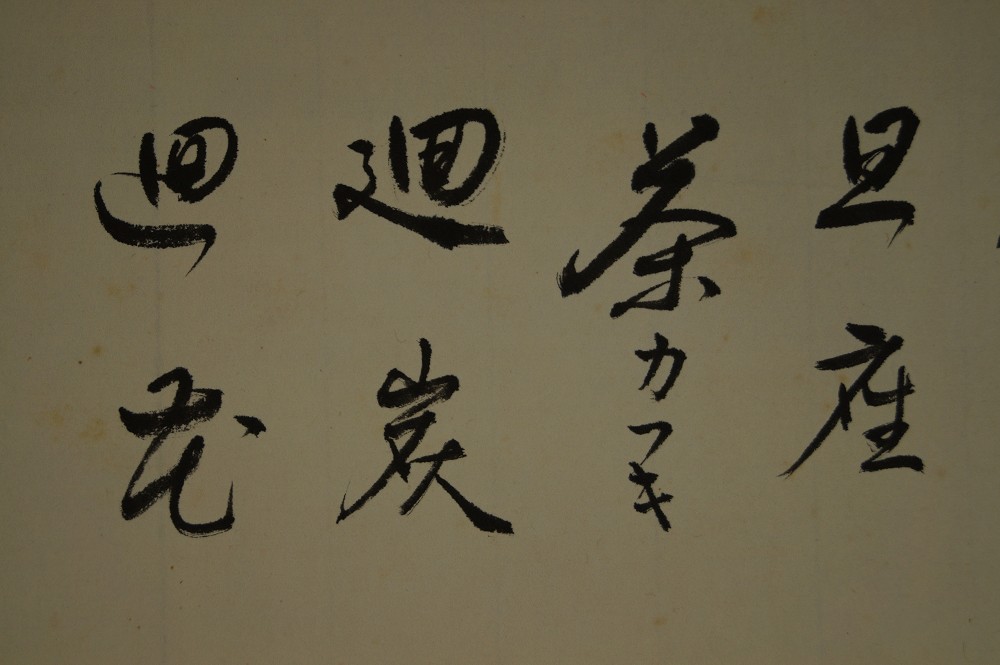 且座
茶カフキ
廻炭
廻花